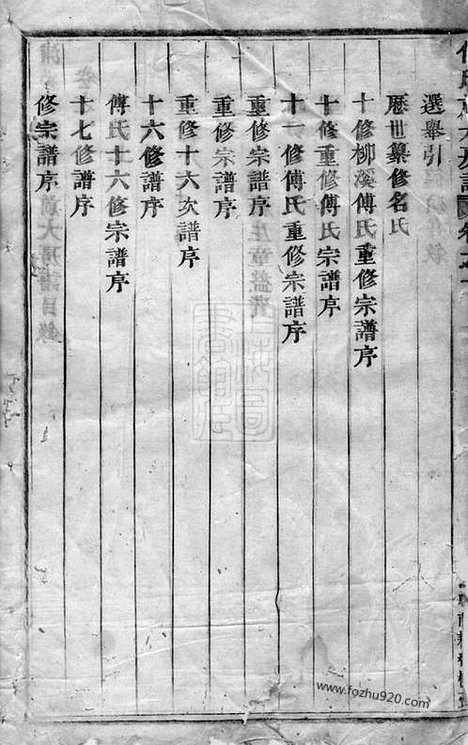 選舉引
歷世纂修名氏
十修柳溪傅氏重修宗譜序
十修重修傅氏宗譜序
十一修傅氏重修宗譜序
重修宗譜序
重修宗譜序
重修十六次譜序
十六修譜序
傅氏十六修宗譜序
十七修譜序
修宗譜序
www.fozhu920.com